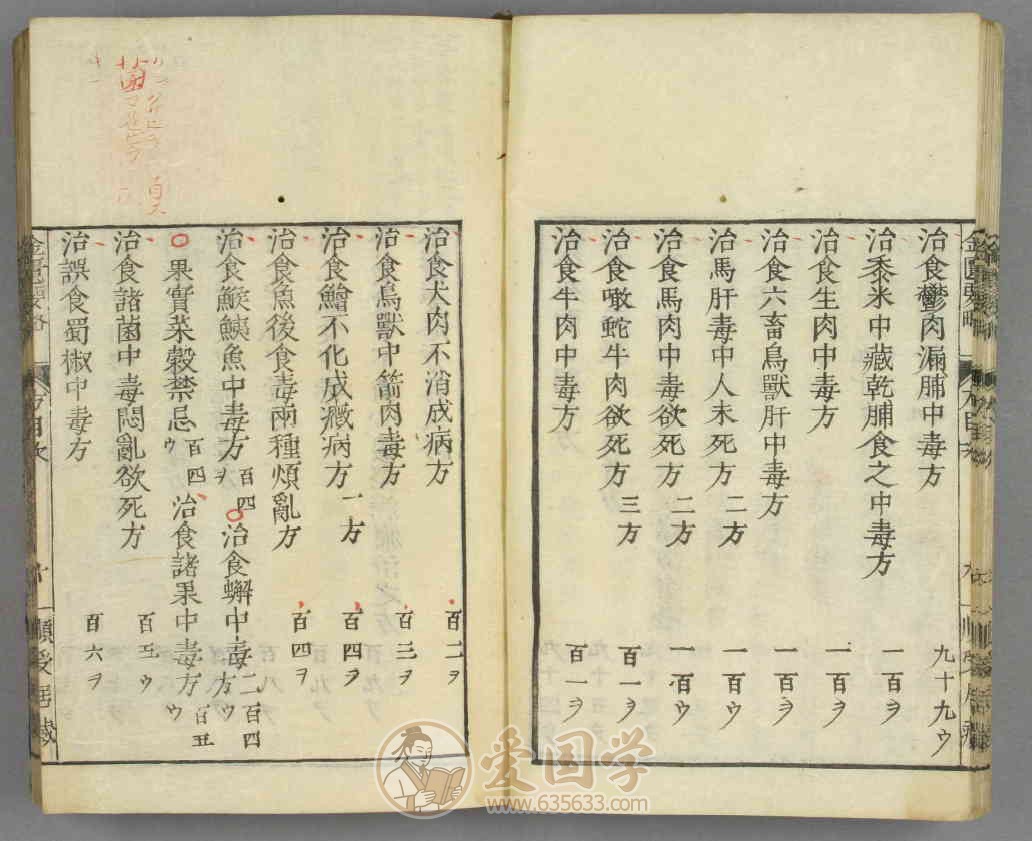 治食鬱肉漏脯中毒方 九十九ウ
治黍米中藏乾脯食之中毒方 一百ヲ
治食生肉中毒方 一百ヲ
治食六畜鳥獸肝中毒方 一百ヲ
治馬肝毒中人未死方 二方 一百ウ
治食馬肉中毒欲死方 二方 一百ウ
治食噉蛇牛肉欲死方 三方 百一ヲ
治食牛肉中毒方 百一ヲ
治食犬肉不消成病方 百二ヲ
治食鳥獸中箭肉毒方 百三ヲ
治食鱠不化成癥病方 一方 百四ヲ
治食魚後食毒兩種煩亂方 百四ヲ
治食鯸鮧魚中毒方 百四ヲ 治食蟹中毒二方 百四ウ
果實菜穀禁忌 百四ウ 治食諸果中毒方 百五ウ
治食諸菌中毒悶亂欲死方 百五ウ
治誤食蜀椒中毒方 百六ヲ
金匱要略 方目次 十
爱国学
www.635633.com